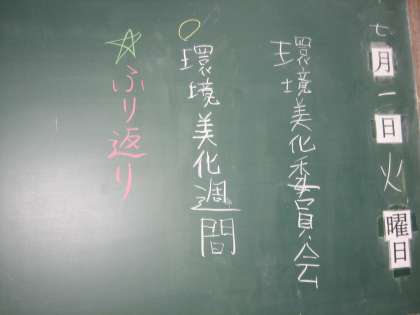 七月一日火曜日
環境美化委員会
○環境美化週間
☆ふり返り